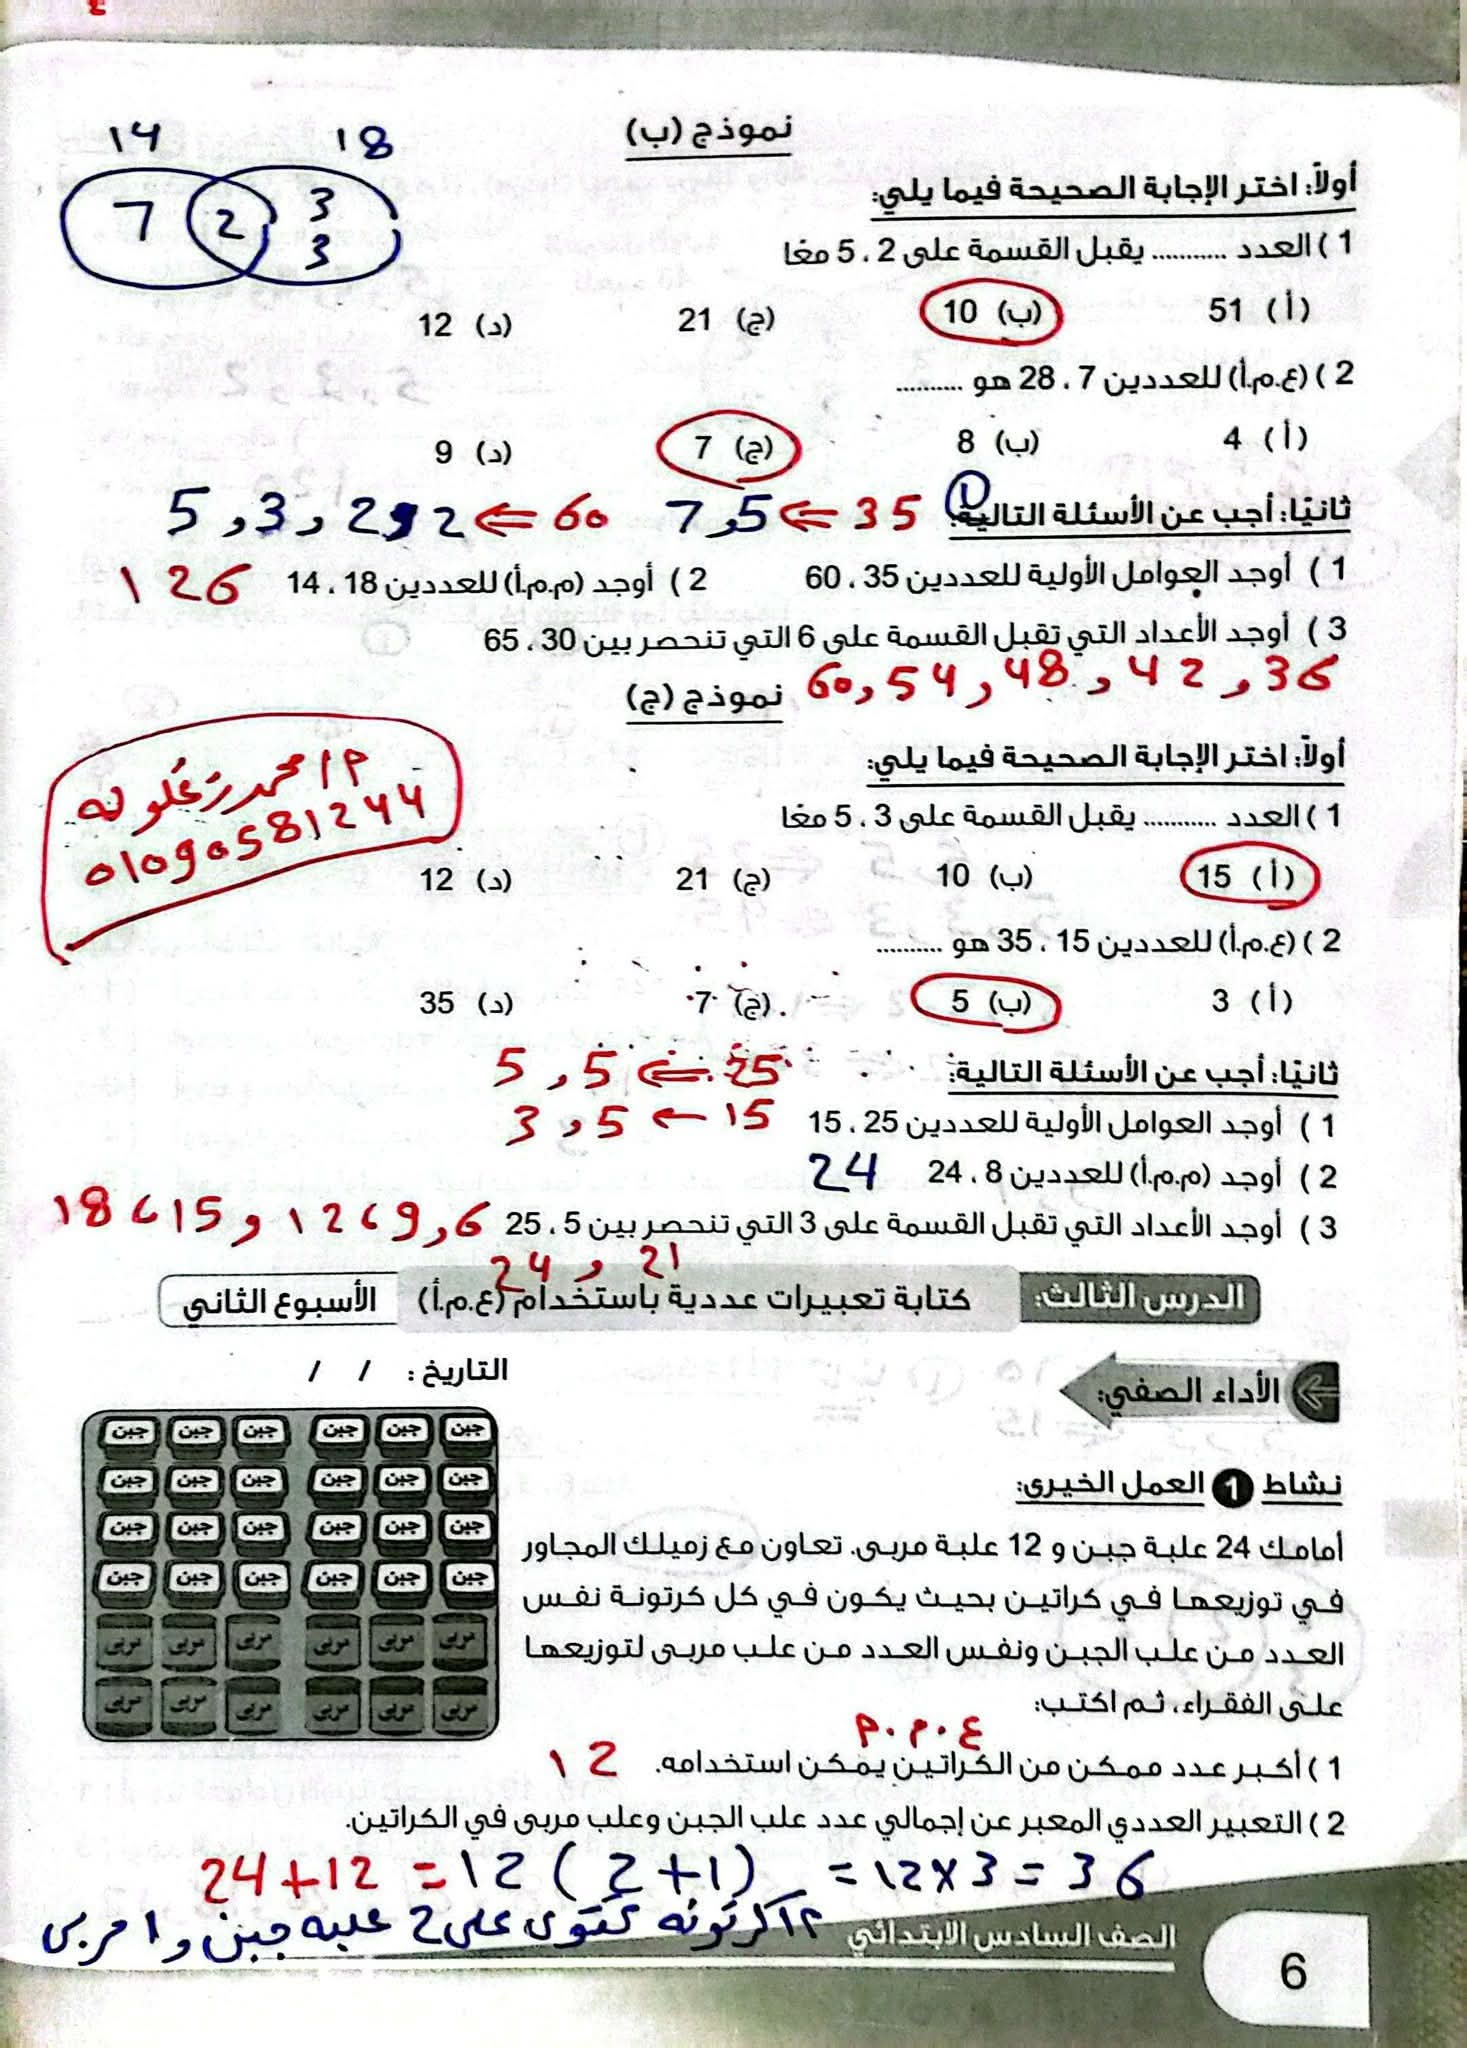 نموذج (ب)
14 18
7 2 3
3
أولاً: اختر الإجابة الصحيحة فيما يلي:
1 ) العدد ........... يقبل القسمة على 2 ، 5 معًا
(أ) 51 (ب) 10 (ج) 21 (د) 12
2 ) (ع.م.أ) للعددين 7 ، 28 هو ..........
(أ) 4 (ب) 8 (ج) 7 (د) 9
ثانيًا: أجب عن الأسئلة التالية: 35 ⇐ 5 , 7 60 ⇐ 2 , 2 , 3 , 5
1 ) أوجد العوامل الأولية للعددين 35 ، 60 2 ) أوجد (م.م.أ) للعددين 18 ، 14 126
3 ) أوجد الأعداد التي تقبل القسمة على 6 التي تنحصر بين 30 ، 65
36 , 42 , 48 , 54 , 60
نموذج (ج)
أولاً: اختر الإجابة الصحيحة فيما يلي:
م / محمد زغلوله
01090581244
1 ) العدد ........... يقبل القسمة على 3 ، 5 معًا
(أ) 15 (ب) 10 (ج) 21 (د) 12
2 ) (ع.م.أ) للعددين 15 ، 35 هو ..........
(أ) 3 (ب) 5 (ج) 7 (د) 35
ثانيًا: أجب عن الأسئلة التالية: 25 ⇐ 5 , 5
1 ) أوجد العوامل الأولية للعددين 25 ، 15 15 ← 5 , 3
2 ) أوجد (م.م.أ) للعددين 8 ، 24 24
3 ) أوجد الأعداد التي تقبل القسمة على 3 التي تنحصر بين 5 ، 25 6 , 9 ، 12 , 15 ، 18
21 , 24
الدرس الثالث: كتابة تعبيرات عددية باستخدام (ع.م.أ) الأسبوع الثاني
التاريخ: / /
الأداء الصفي:
جبن جبن جبن جبن جبن جبن
جبن جبن جبن جبن جبن جبن
جبن جبن جبن جبن جبن جبن
جبن جبن جبن جبن جبن جبن
مربى مربى مربى مربى مربى مربى
مربى مربى مربى مربى مربى مربى
نشاط 1 العمل الخيري:
أمامك 24 علبة جبن و 12 علبة مربى. تعاون مع زميلك المجاور
في توزيعها في كراتين بحيث يكون في كل كرتونة نفس
العدد من علب الجبن ونفس العدد من علب مربى لتوزيعها
على الفقراء، ثم اكتب:
ع.م.م
1 ) أكبر عدد ممكن من الكراتين يمكن استخدامه. 12
2 ) التعبير العددي المعبر عن إجمالي عدد علب الجبن وعلب مربى في الكراتين.
24+12 = 12 (2+1) = 12×3 = 36
12 كرتونه تحتوى على 2 علبه جبن و 1 مربى
الصف السادس الابتدائي
6